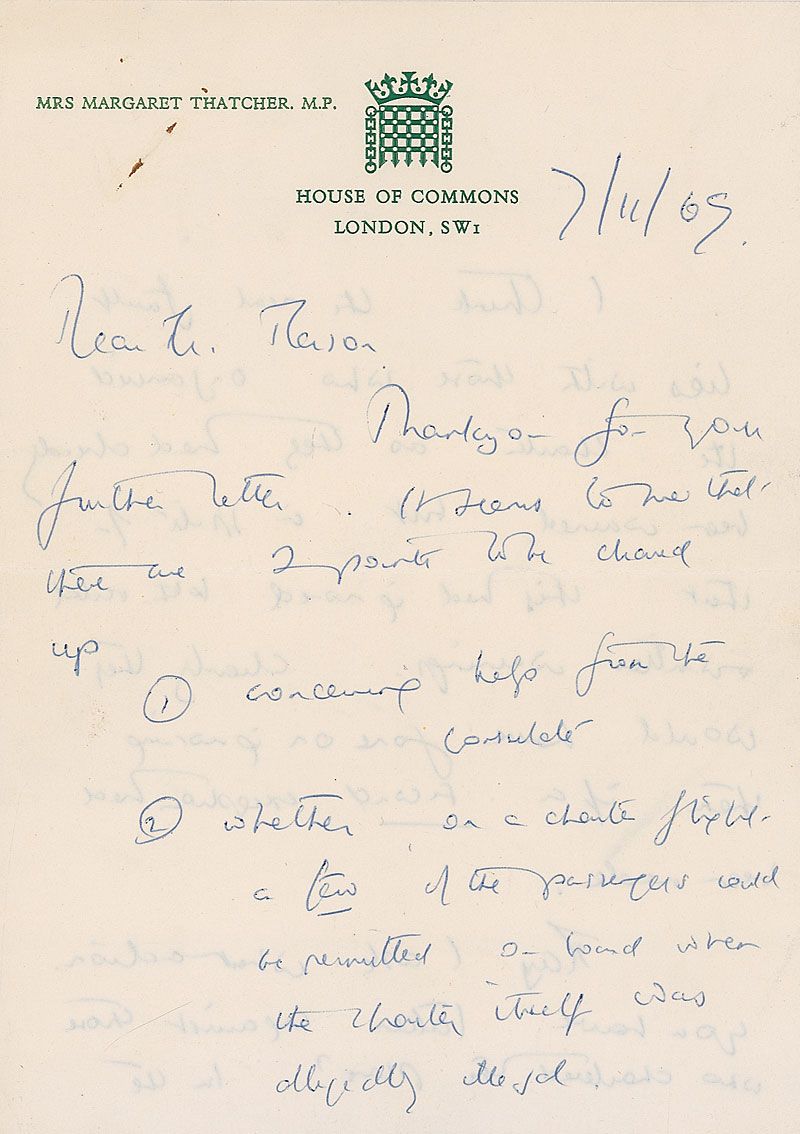 MRS MARGARET THATCHER. M.P.
HOUSE OF COMMONS
LONDON, SW1
7/11/69.
Dear Mr.
Thankyou for your
further letter. It seems to me that
there are 2 points to be chased
up
① concerning help from the
consulate
② whether on a charter flight
a few of the passengers could
be permitted on board when
the charter itself was
allegedly illegal.